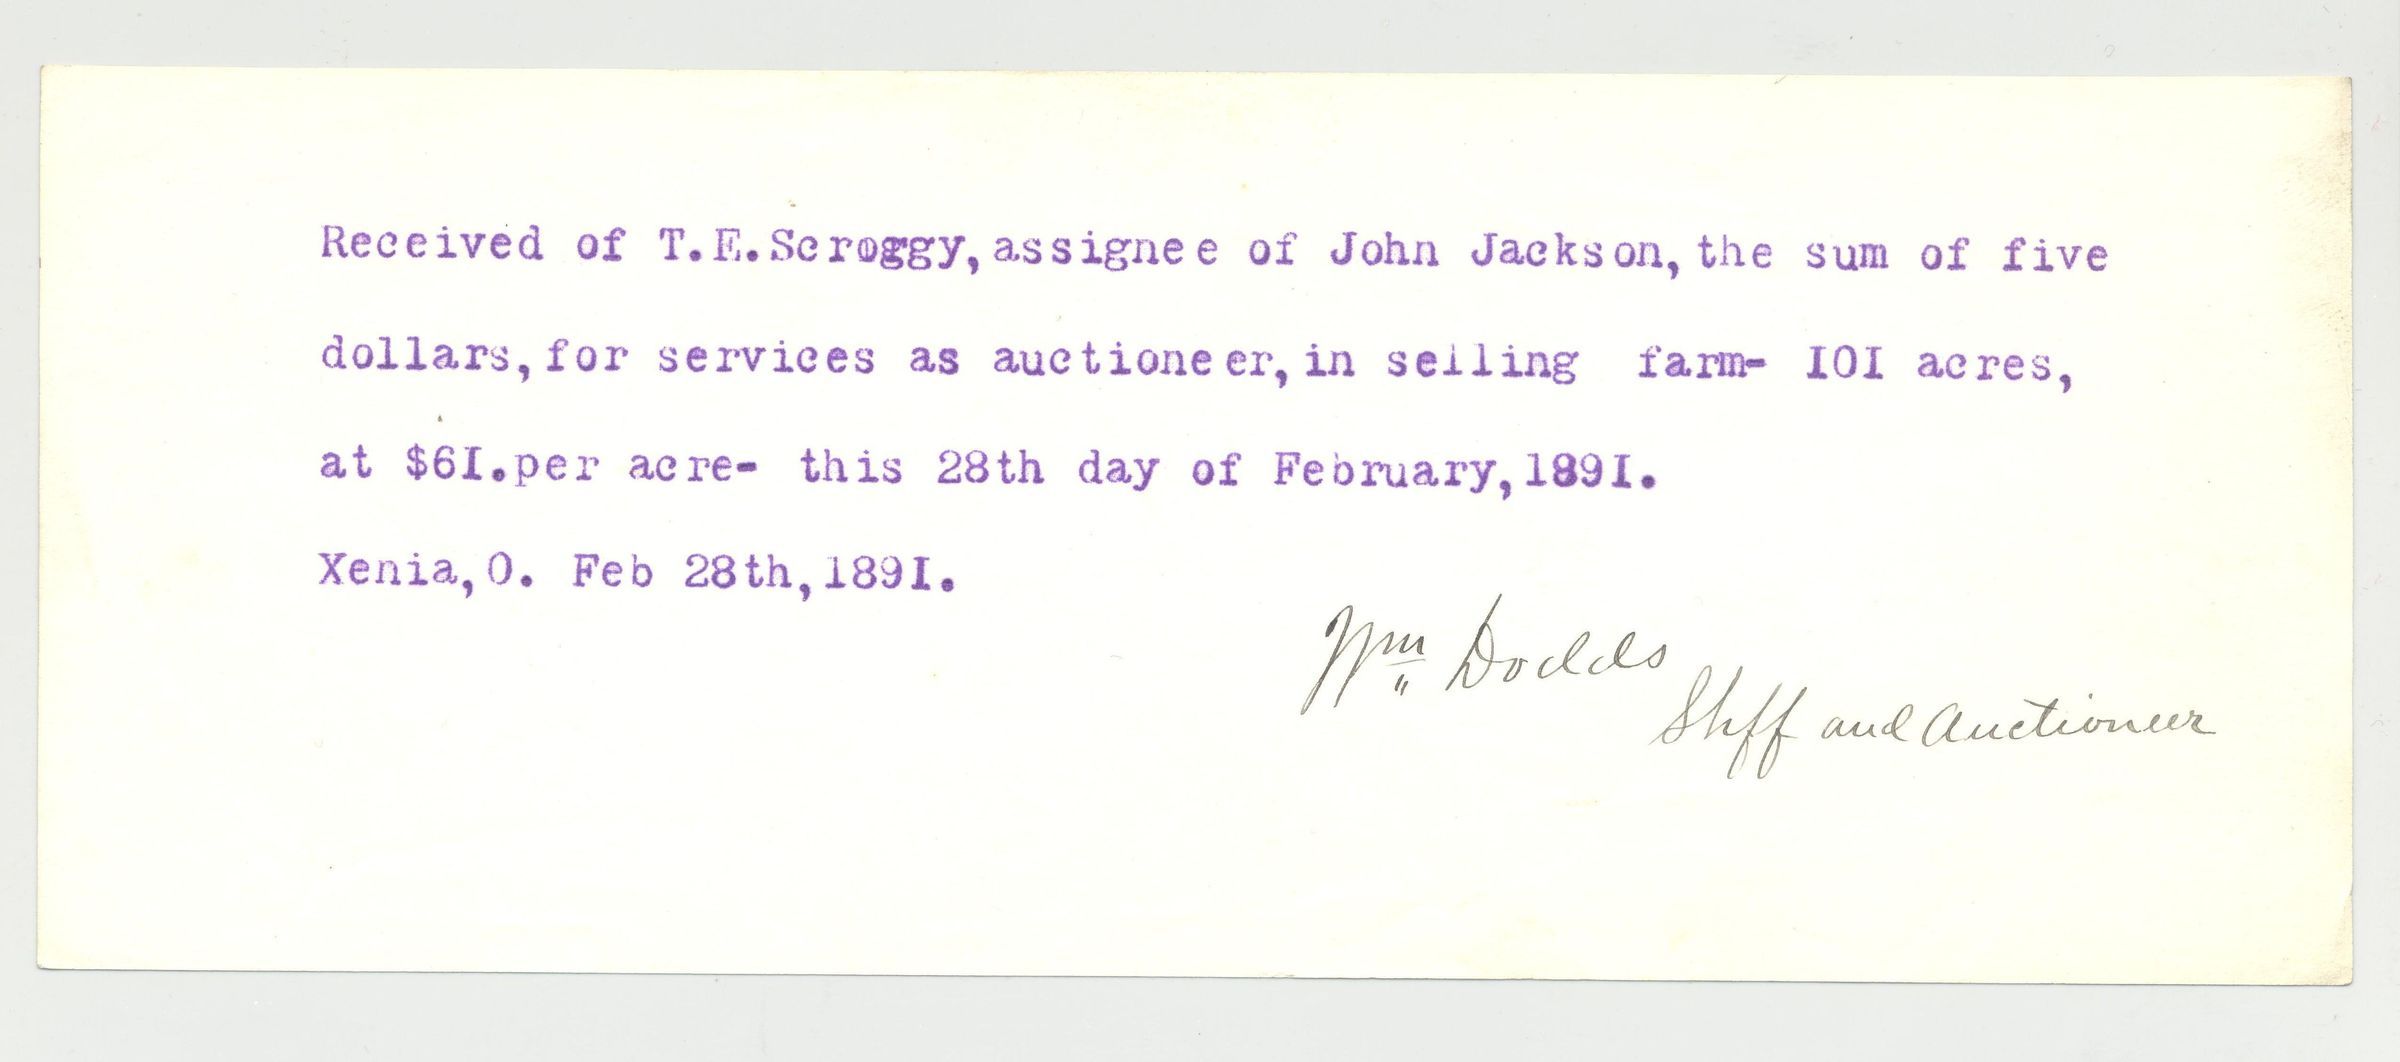 Received of T.E.Scroggy,assignee of John Jackson,the sum of five
dollars,for services as auctioneer,in selling farm- IOI acres,
at $6I.per acre- this 28th day of February,189I.
Xenia,O. Feb 28th,189I.
Wm Dodds
Shff and Auctioneer